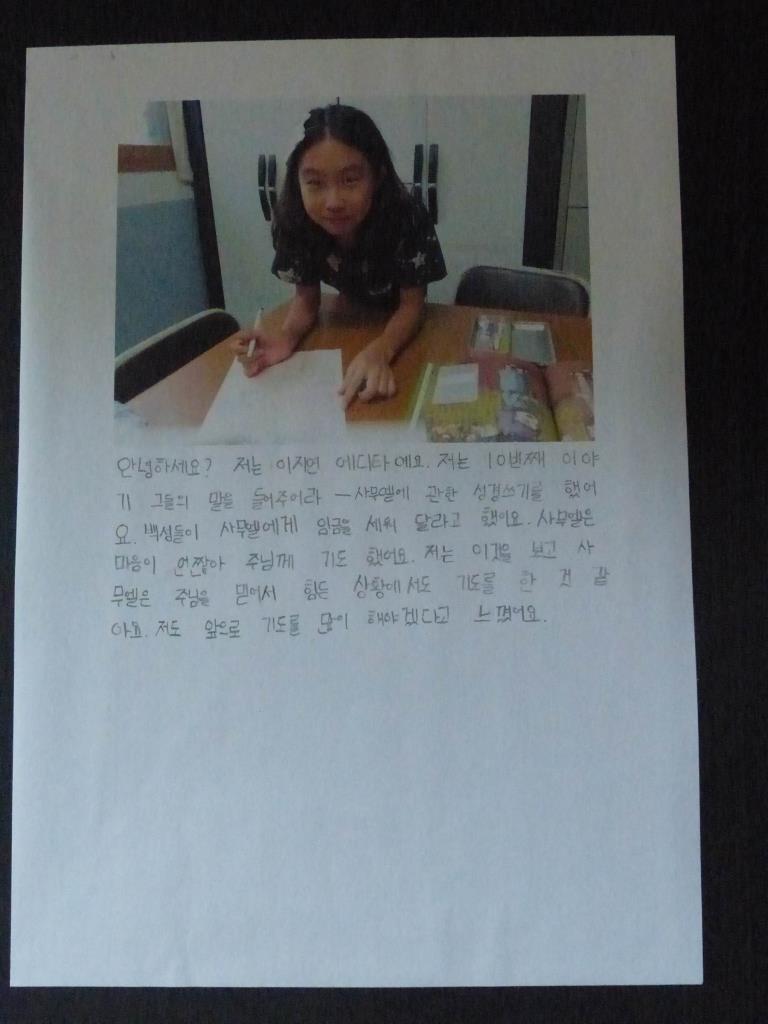 안녕하세요? 저는 이지연 에디타예요. 저는 10번째 이야
기 그들의 말을 들어주어라 - 사무엘에 관한 성경쓰기를 했어
요. 백성들이 사무엘에게 임금을 세워 달라고 했어요. 사무엘은
마음이 언짢아 주님께 기도 했어요. 저는 이것을 보고 사
무엘은 주님을 믿어서 힘든 상황에서도 기도를 한 것 같
아요. 저도 앞으로 기도를 많이 해야겠다고 느꼈어요.